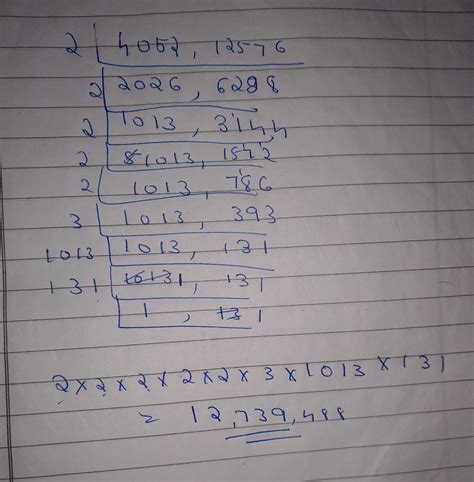 2 | 4052, 12576
2 | 2026, 6288
2 | 1013, 3144
2 | 1013, 1572
2 | 1013, 786
3 | 1013, 393
1013 | 1013, 131
131 | 1, 131
1, 1
2×2×2×2×2×3×1013×131
= 12,739,488